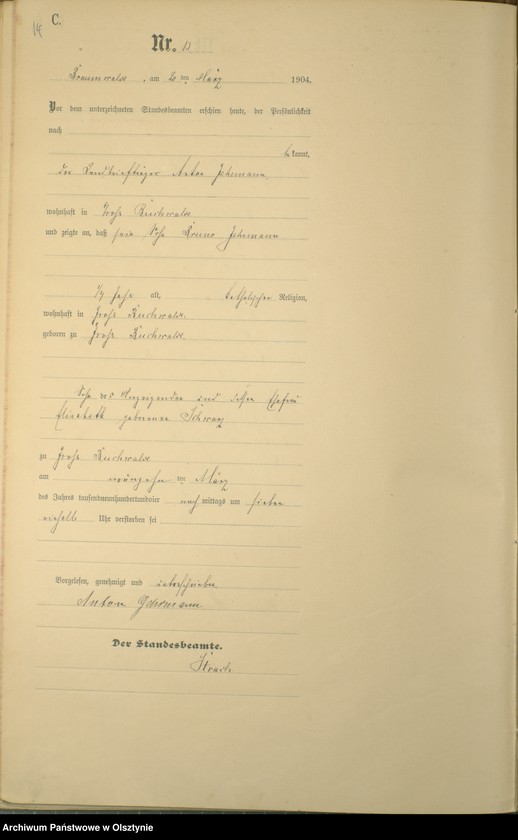 C.
14
Nr. 12
Braunswalde, am 20ten März 1904.
Vor dem unterzeichneten Standesbeamten erschien heute, der Persönlichkeit
nach
be kannt,
der Landbriefträger Anton
wohnhaft in Groß Buchwalde
und zeigte an, daß sein Sohn Bruno
1/4 Jahr alt, katholischer Religion,
wohnhaft in Groß Buchwalde
geboren zu Groß Buchwalde
Sohn des Anzeigenden und dessen Ehefrau
Elisabeth geborenen Schwarz
zu Groß Buchwalde
am ten März
des Jahres tausendneunhundertundvier nach mittags um sieben
einhalb Uhr verstorben sei
Vorgelesen, genehmigt und unterschrieben
Anton
Der Standesbeamte.
Archiwum Państwowe w Olsztynie